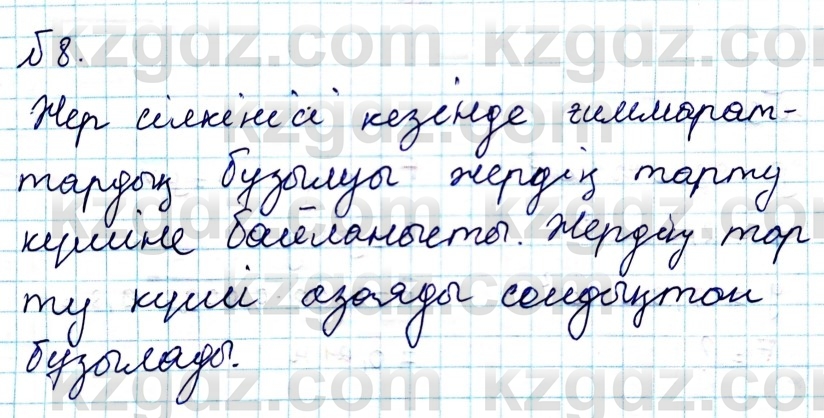 №8.
Жер сілкінісі кезінде ғиммарат-
тардың бұзылуы жердің тарту
күшіне байланысты. Жердің тар
ту күші азаяды сондықтан
бұзылады.